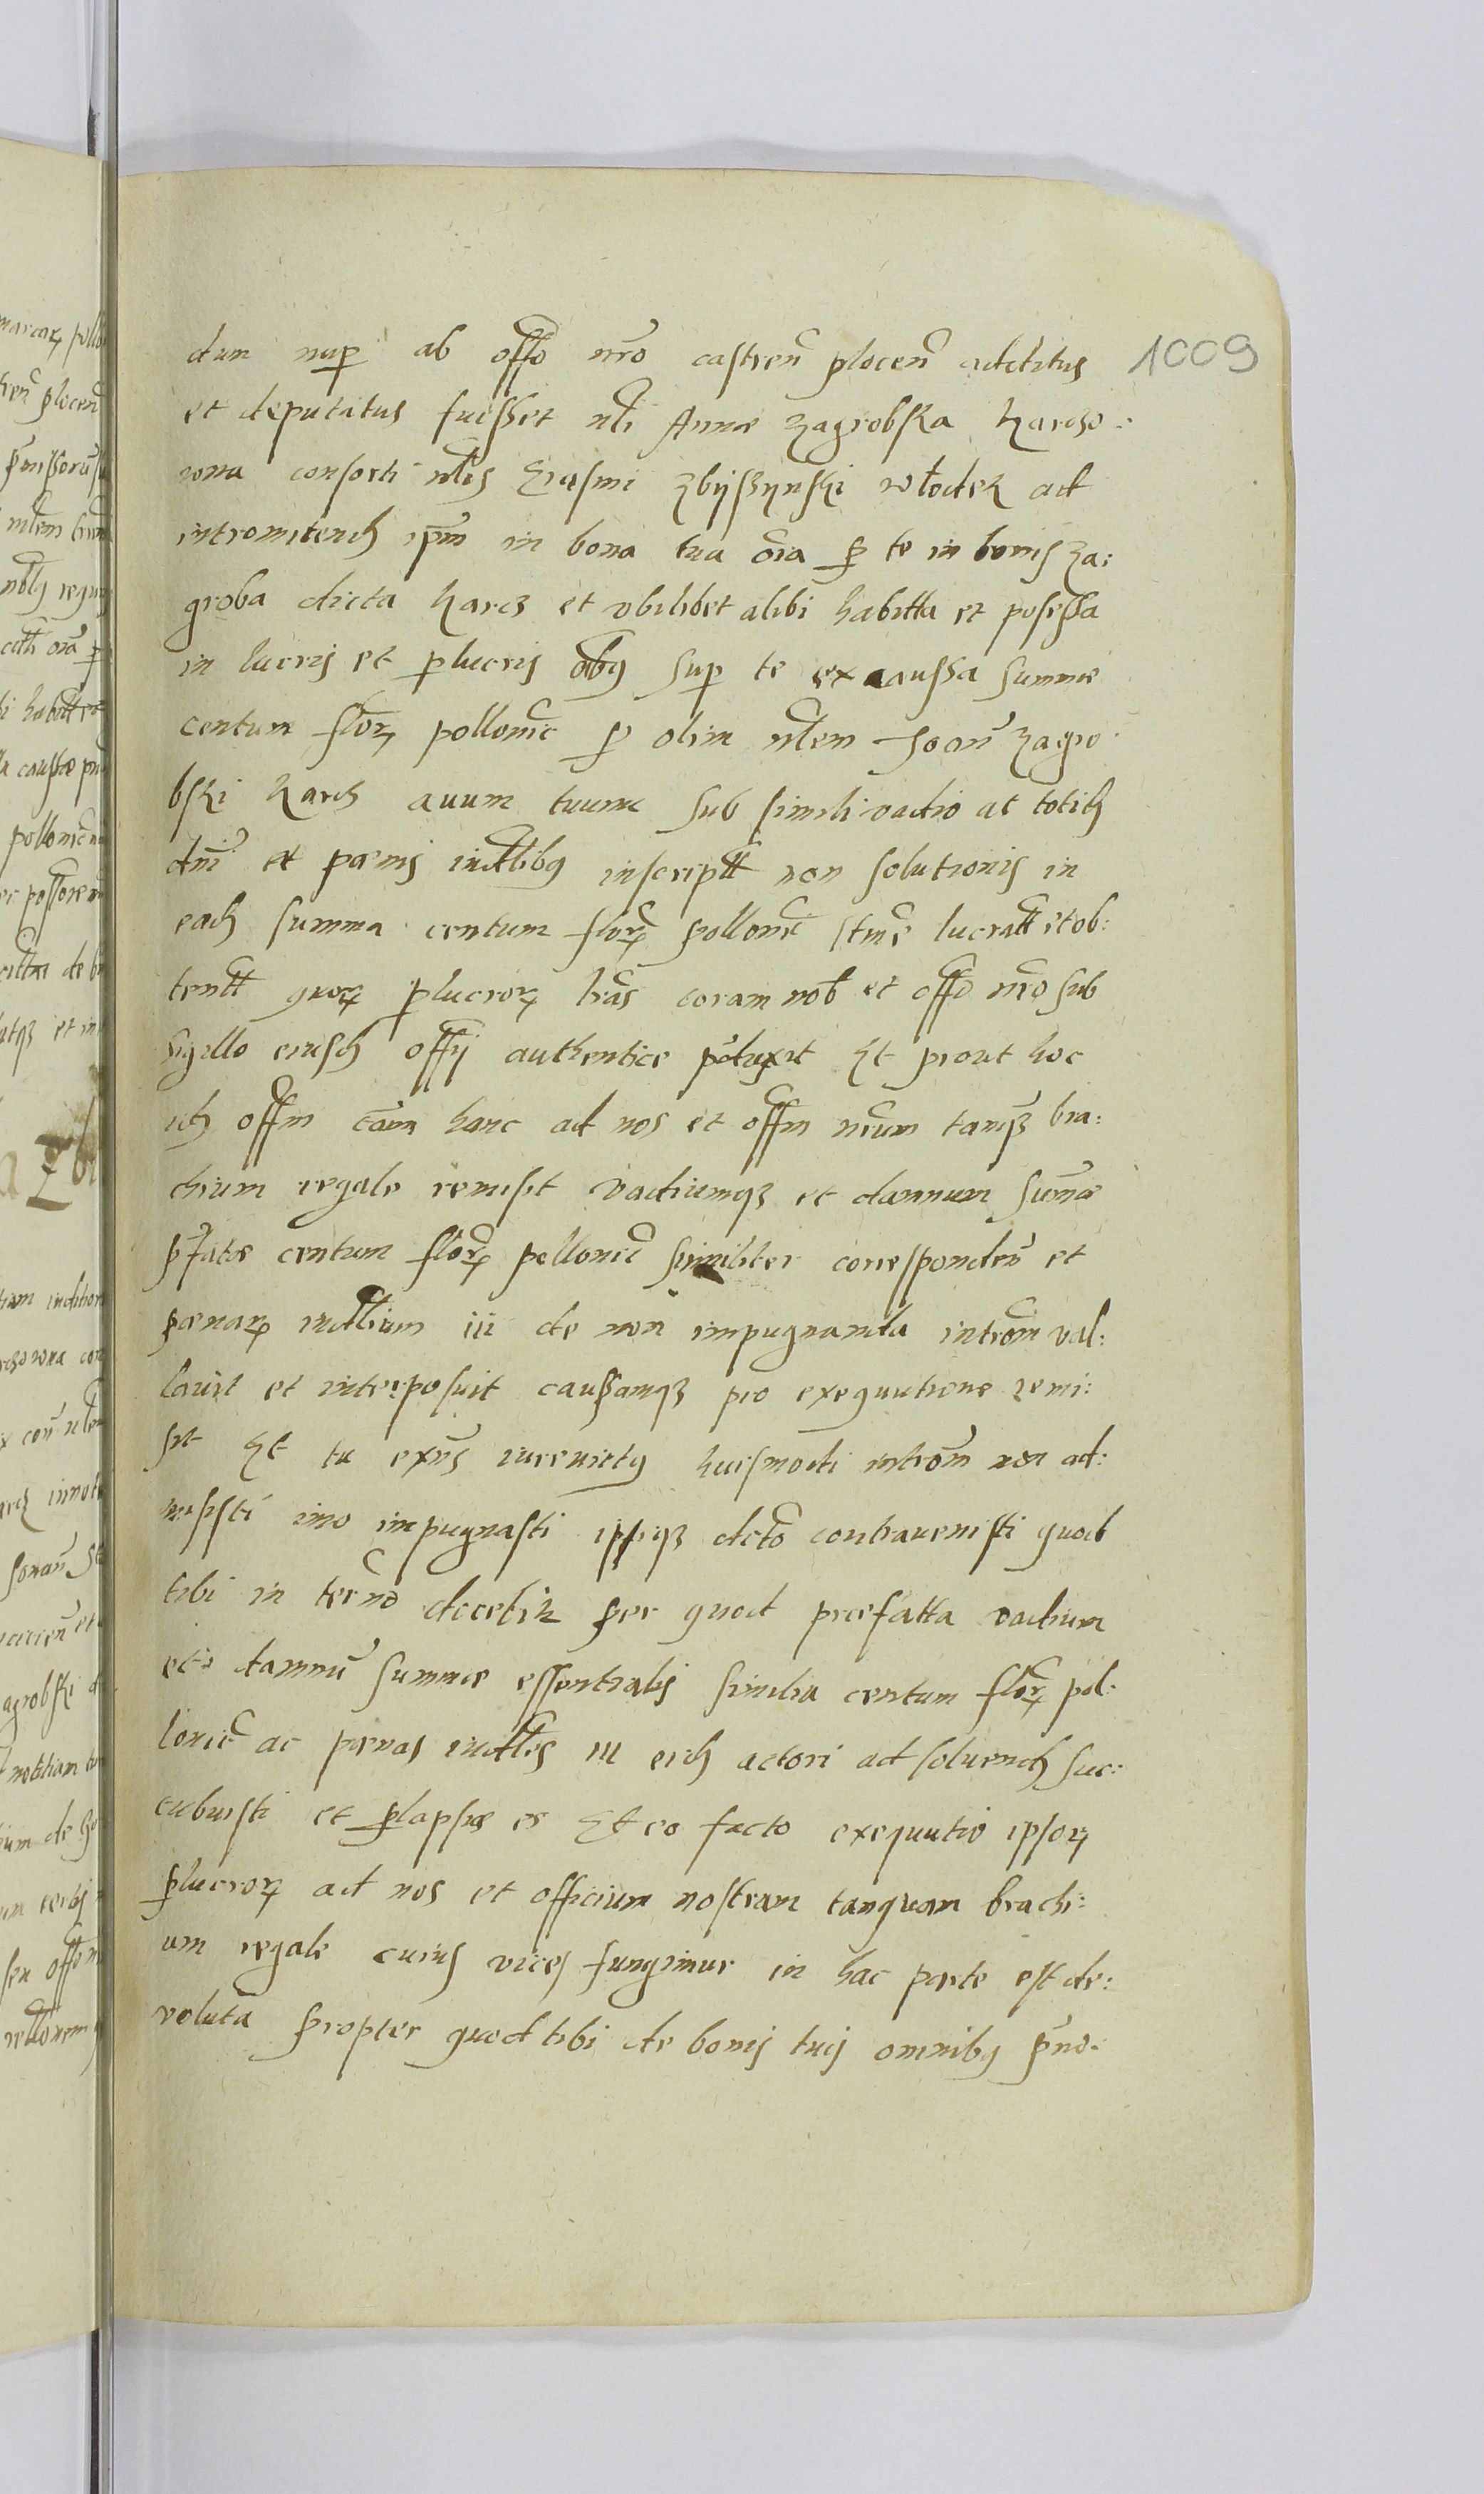 1009
dum nup ab offo nro castren plocen additus
et deputatus fuisset nli Annæ Zagrobska Karczo:
wna consorti nlis Erasmi Zbÿszynski Włodek ad
intromitend ipm in bona tua oia p te in bonis Za:
groba dicta Karcz et vbilibet alibi habitta et posessa
in lucris et plucris obus sup te ex caussa summæ
centum flor pollonic p olim nlem Joan Zagro
bski Karcz auum tuum sub simili vadio ac totih
dni et pænis iudlibus inscriptt non solutionis in
eadh summa centum flor pollonic lucratt et ob:
tentt quor plucror lras coram nob et offo nro sub
sigillo eiusdh offÿ authentice pduxit Et prout hoc
idh offm cam hanc ad nos et offm nrum tamq bra:
chium regale remisit vadiumq et damnum summæ
pfatæ centum flor pollonic similiter corresponden et
pænar iudlium iii de non impugnanda introm val:
lauit et interposuit caussamq pro exequutione remi:
sit Et tu exns huiusmodi introm non ad:
misisti imo impugnasti ipsiq dcto contrauenisti quod
tibi in termo docebit per quod præfatta vadium
et damnu summæ essentialis similia centum flor pol:
lonic ac pænas iudles iii eidh actori ad soluendh suc:
cubuisti et plapsus es Et eo facto exequutio ipsor
plucror ad nos et officium nostram tanquam brachi:
um regale cuius vices fungimur in hac parte est de:
voluta propter quod tibi de bonis tuis omnibus pno: